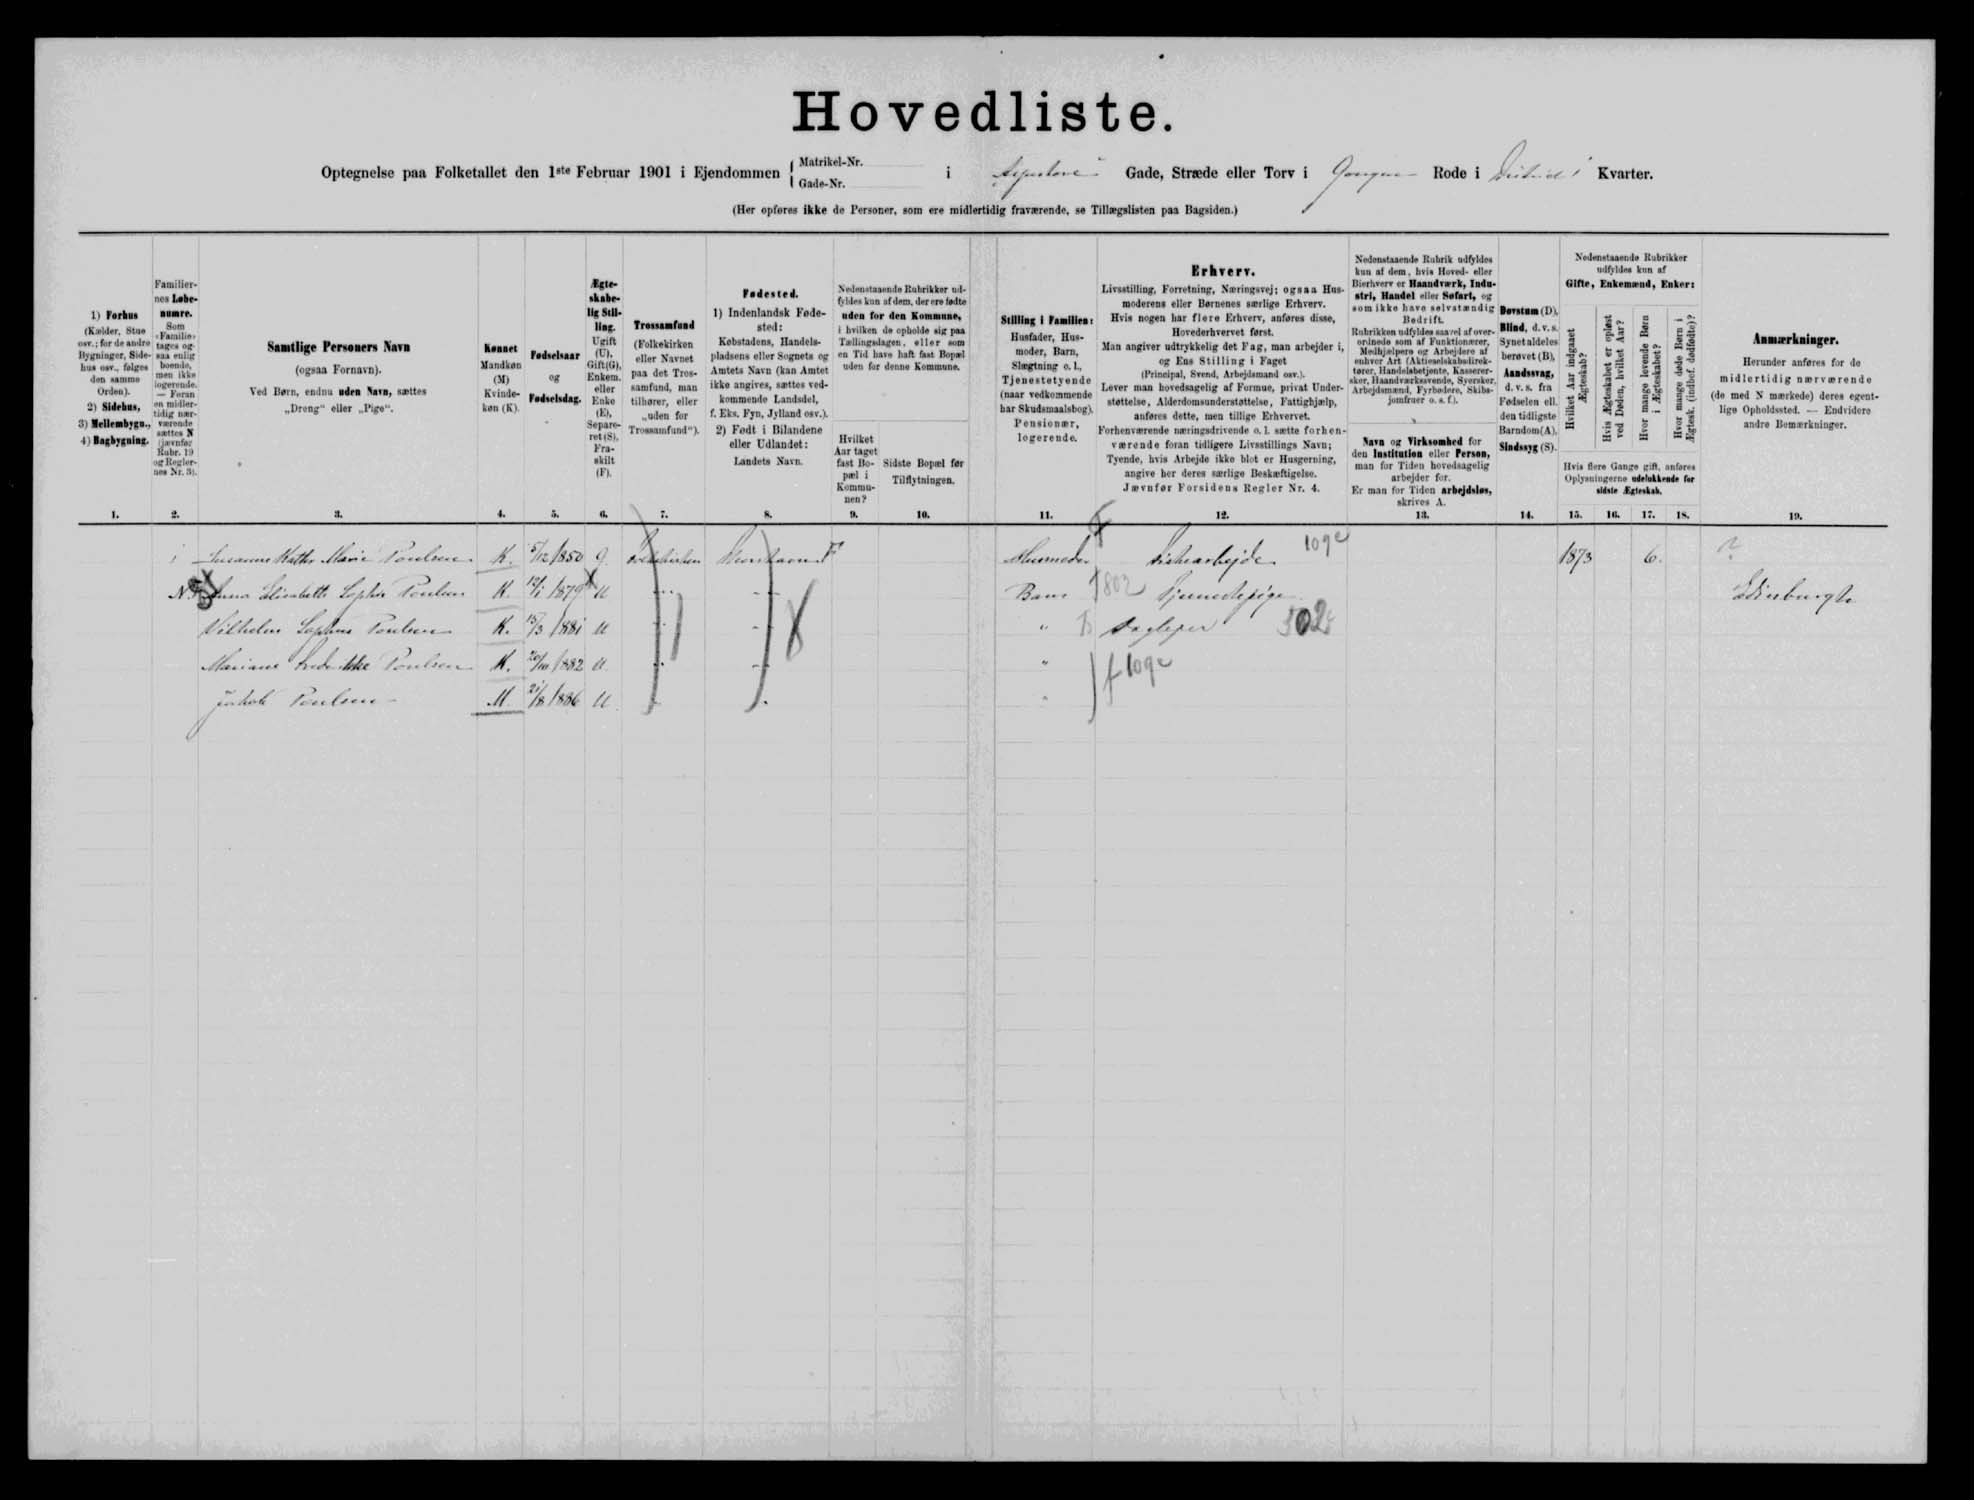 Hovedliste.
Optegnelse paa Folketallet den 1ste Februar 1901 i Ejendommen { Matrikel-Nr. Gade-Nr. i Gade, Stræde eller Torv i Rode i Kvarter.
(Her opføres ikke de Personer, som ere midlertidig fraværende, se Tillægslisten paa Bagsiden.)
1) Forhus
(Kælder, Stue
osv.; for de andre
Bygninger, Side-
hus osv., følges
den samme
Orden).
2) Sidehus,
3) Mellembygn.,
4) Bagbygning.
Familier-
nes Løbe-
numre.
Som
»Familie»
tages og-
saa enlig
boende,
men ikke
logerende.
— Foran
en midler-
tidig nær-
værende
sættes N
(jævnfør
Rubr. 19
og Regler-
nes Nr. 3).
Samtlige Personers Navn
(ogsaa Fornavn).
Ved Børn, endnu uden Navn, sættes
„Dreng“ eller „Pige“.
Kønnet
Mandkøn
(M)
Kvinde-
køn (K).
Fødselsaar
og
Fødselsdag.
Ægte-
skabe-
lig Stil-
ling.
Ugift
(U),
Gift(G),
Enkem.
eller
Enke
(E),
Separe-
ret(S),
Fra-
skilt
(F).
Trossamfund
(Folkekirken
eller Navnet
paa det Tros-
samfund, man
tilhører, eller
„uden for
Trossamfund“).
Fødested.
1) Indenlandsk Føde-
sted:
Købstadens, Handels-
pladsens eller Sognets og
Amtets Navn (kan Amtet
ikke angives, sættes ved-
kommende Landsdel,
f. Eks. Fyn, Jylland osv.).
2) Født i Bilandene
eller Udlandet:
Landets Navn.
Nedenstaaende Rubrikker ud-
fyldes kun af dem, der ere fødte
uden for den Kommune,
i hvilken de opholde sig paa
Tællingsdagen, eller som
en Tid have haft fast Bopæl
uden for denne Kommune.
Hvilket
Aar taget
fast Bo-
pæl i
Kommu-
nen?
Sidste Bopæl før
Tilflytningen.
Stilling i Familien:
Husfader, Hus-
moder, Barn,
Slægtning o. l.,
Tjenestetyende
(naar vedkommende
har Skudsmaalsbog),
Pensionær,
logerende.
Erhverv.
Livsstilling, Forretning, Næringsvej; ogsaa Hus-
moderens eller Børnenes særlige Erhverv.
Hvis nogen har flere Erhverv, anføres disse,
Hovederhvervet først.
Man angiver udtrykkelig det Fag, man arbejder i,
og Ens Stilling i Faget
(Principal, Svend, Arbejdsmand osv.).
Lever man hovedsagelig af Formue, privat Under-
støttelse, Alderdomsunderstøttelse, Fattighjælp,
anføres dette, men tillige Erhvervet.
Forhenværende næringsdrivende o. l. sætte forhen-
værende foran tidligere Livsstillings Navn;
Tyende, hvis Arbejde ikke blot er Husgerning,
angive her deres særlige Beskæftigelse.
Jævnfør Forsidens Regler Nr. 4.
Nedenstaaende Rubrik udfyldes
kun af dem, hvis Hoved- eller
Bierhverv er Haandværk, Indu-
stri, Handel eller Søfart, og
som ikke have selvstændig
Bedrift.
Rubrikken udfyldes saavel af over-
ordnede som af Funktionærer,
Medhjælpere og Arbejdere af
enhver Art (Aktieselskabsdirek-
tører, Handelsbetjente, Kasserer-
sker, Haandværkssvende, Syersker,
Arbejdsmænd, Fyrbødere, Skibs-
jomfruer o. s. f.).
Navn og Virksomhed for
den Institution eller Person,
man for Tiden hovedsagelig
arbejder for.
Er man for Tiden arbejdsløs,
skrives A.
Døvstum (D),
Blind, d. v. s.
Synet aldeles
berøvet (B),
Aandssvag,
d. v. s. fra
Fødselen ell.
den tidligste
Barndom (A),
Sindssyg (S).
Nedenstaaende Rubrikker
udfyldes kun af
Gifte, Enkemænd, Enker:
Hvilket Aar indgaaet
Ægteskab?
Hvis Ægteskabet er opløst
ved Døden, hvilket Aar?
Hvor mange levende Børn
i Ægteskabet?
Hvor mange døde Børn i
Ægtesk. (indbef. dødfødte)?
Hvis flere Gange gift, anføres
Oplysningerne udelukkende for
sidste Ægteskab.
Anmærkninger.
Herunder anføres for de
midlertidig nærværende
(de med N mærkede) deres egent-
lige Opholdssted. — Endvidere
andre Bemærkninger.
1. 2. 3. 4. 5. 6. 7. 8. 9. 10. 11. 12. 13. 14. 15. 16. 17. 18. 19.
1 Marie Poulsen K. 5/12 1850 G. Folkekirken Husmoder Fiskearbejde 109c 1873 6. ?
N. Anna Elisabeth Sophie Poulsen K. 12/1 1879 U Barn 802 Tjenestepige Edinburgh
Vilhelm Poulsen K. 15/3 1881 U " 802
Mariane Frederikke Poulsen K. 1882 U. " f 109c
Jakob Poulsen M. 21/8 1886 U. "